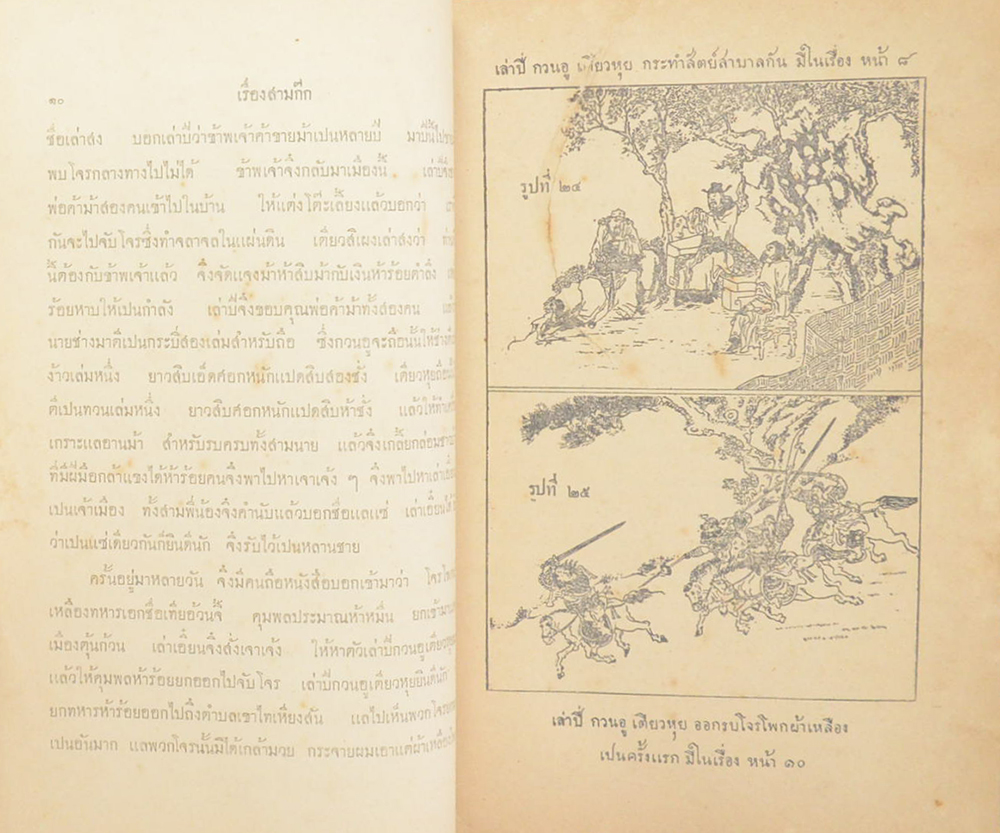 ๑๐
เรื่องสามก๊ก
ชื่อเล่าสง บอกเล่าปี่ว่าข้าพเจ้าค้าขายม้าเปนหลายปี มาปีนี้ไป
พบโจรกลางทางไปไม่ได้ ข้าพเจ้าจึ่งกลับมาเมืองนี้ เล่าปี่จึ่ง
พ่อค้าม้าสองคนเข้าไปในบ้าน ให้แต่งโต๊ะเลี้ยงแล้วบอกว่า
กันจะไปจับโจรซึ่งทำจลาจลในแผ่นดิน เตียวสิเผงเล่าสงว่า
นี้ต้องกับข้าพเจ้าแล้ว จึ่งจัดแจงม้าห้าสิบม้ากับเงินห้าร้อยตำลึง
ร้อยหาบให้เปนกำลัง เล่าปี่จึ่งขอบคุณพ่อค้าม้าทั้งสองคน
นายช่างมาตีเปนกระบี่สองเล่มสำหรับถือ ซึ่งกวนอูจะถือนั้นให้ช่างตี
ง้าวเล่มหนึ่ง ยาวสิบเอ็ดศอกหนักแปดสิบสองชั่ง เตียวหุยถือนั้น
ตีเปนทวนเล่มหนึ่ง ยาวสิบศอกหนักแปดสิบห้าชั่ง แล้วให้ทำ
เกราะแลอานม้า สำหรับรบครบทั้งสามนาย แล้วจึ่งเกลี้ยกล่อมชาว
ที่มีฝีมือกล้าแขงได้ห้าร้อยคนจึ่งพาไปหาเจาเจ้ง ๆ จึ่งพาไปหาเล่าเอี๋ยน
เปนเจ้าเมือง ทั้งสามพี่น้องจึ่งคำนับแล้วบอกชื่อแลแซ่ เล่าเอี๋ยน
ว่าเปนแซ่เดียวกันก็ยินดีนัก จึ่งรับไว้เปนหลานชาย
ครั้นอยู่มาหลายวัน จึ่งมีคนถือหนังสือบอกเข้ามาว่า โจรโพก
เหลืองทหารเอกชื่อเทียอ้วนจี้ คุมพลประมาณห้าหมื่น ยกเข้ามา
เมืองตุ้นก้วน เล่าเอี๋ยนจึ่งสั่งเจาเจ้ง ให้หาตัวเล่าปี่กวนอูเตียวหุย
แล้วให้คุมพลห้าร้อยยกออกไปจับโจร เล่าปี่กวนอูเตียวหุยยินดีนัก
ยกทหารห้าร้อยออกไปถึงตำบลเขาไทเหียงสัน แลไปเห็นพวกโจร
เปนอันมาก แลพวกโจรนั้นมิได้เกล้ามวย กระจายผมเอาแต่ผ้าเหลือง
เล่าปี่ กวนอู เตียวหุย กระทำสัตย์สาบาลกัน มีในเรื่อง หน้า ๘
รูปที่ ๒๔
รูปที่ ๒๕
เล่าปี่ กวนอู เตียวหุย ออกรบโจรโพกผ้าเหลือง
เปนครั้งแรก มีในเรื่อง หน้า ๑๐